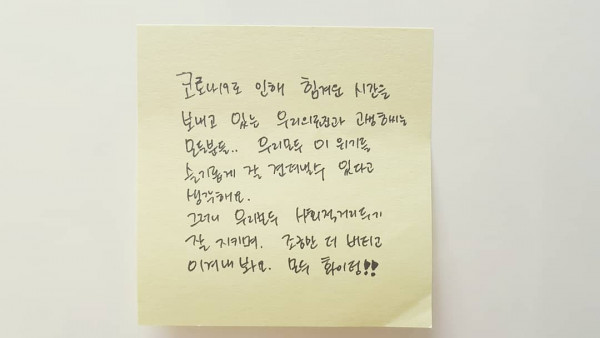 코로나19로 인해 힘겨운 시간을
보내고 있는 우리의료진과 고생하시는
모든분들.. 우리모두 이 위기를
슬기롭게 잘 견뎌낼수 있다고
생각해요.
그러니 우리모두 사회적거리두기
잘 지키며. 조금만 더 버티고
이겨내 봐요. 모두 화이팅!!